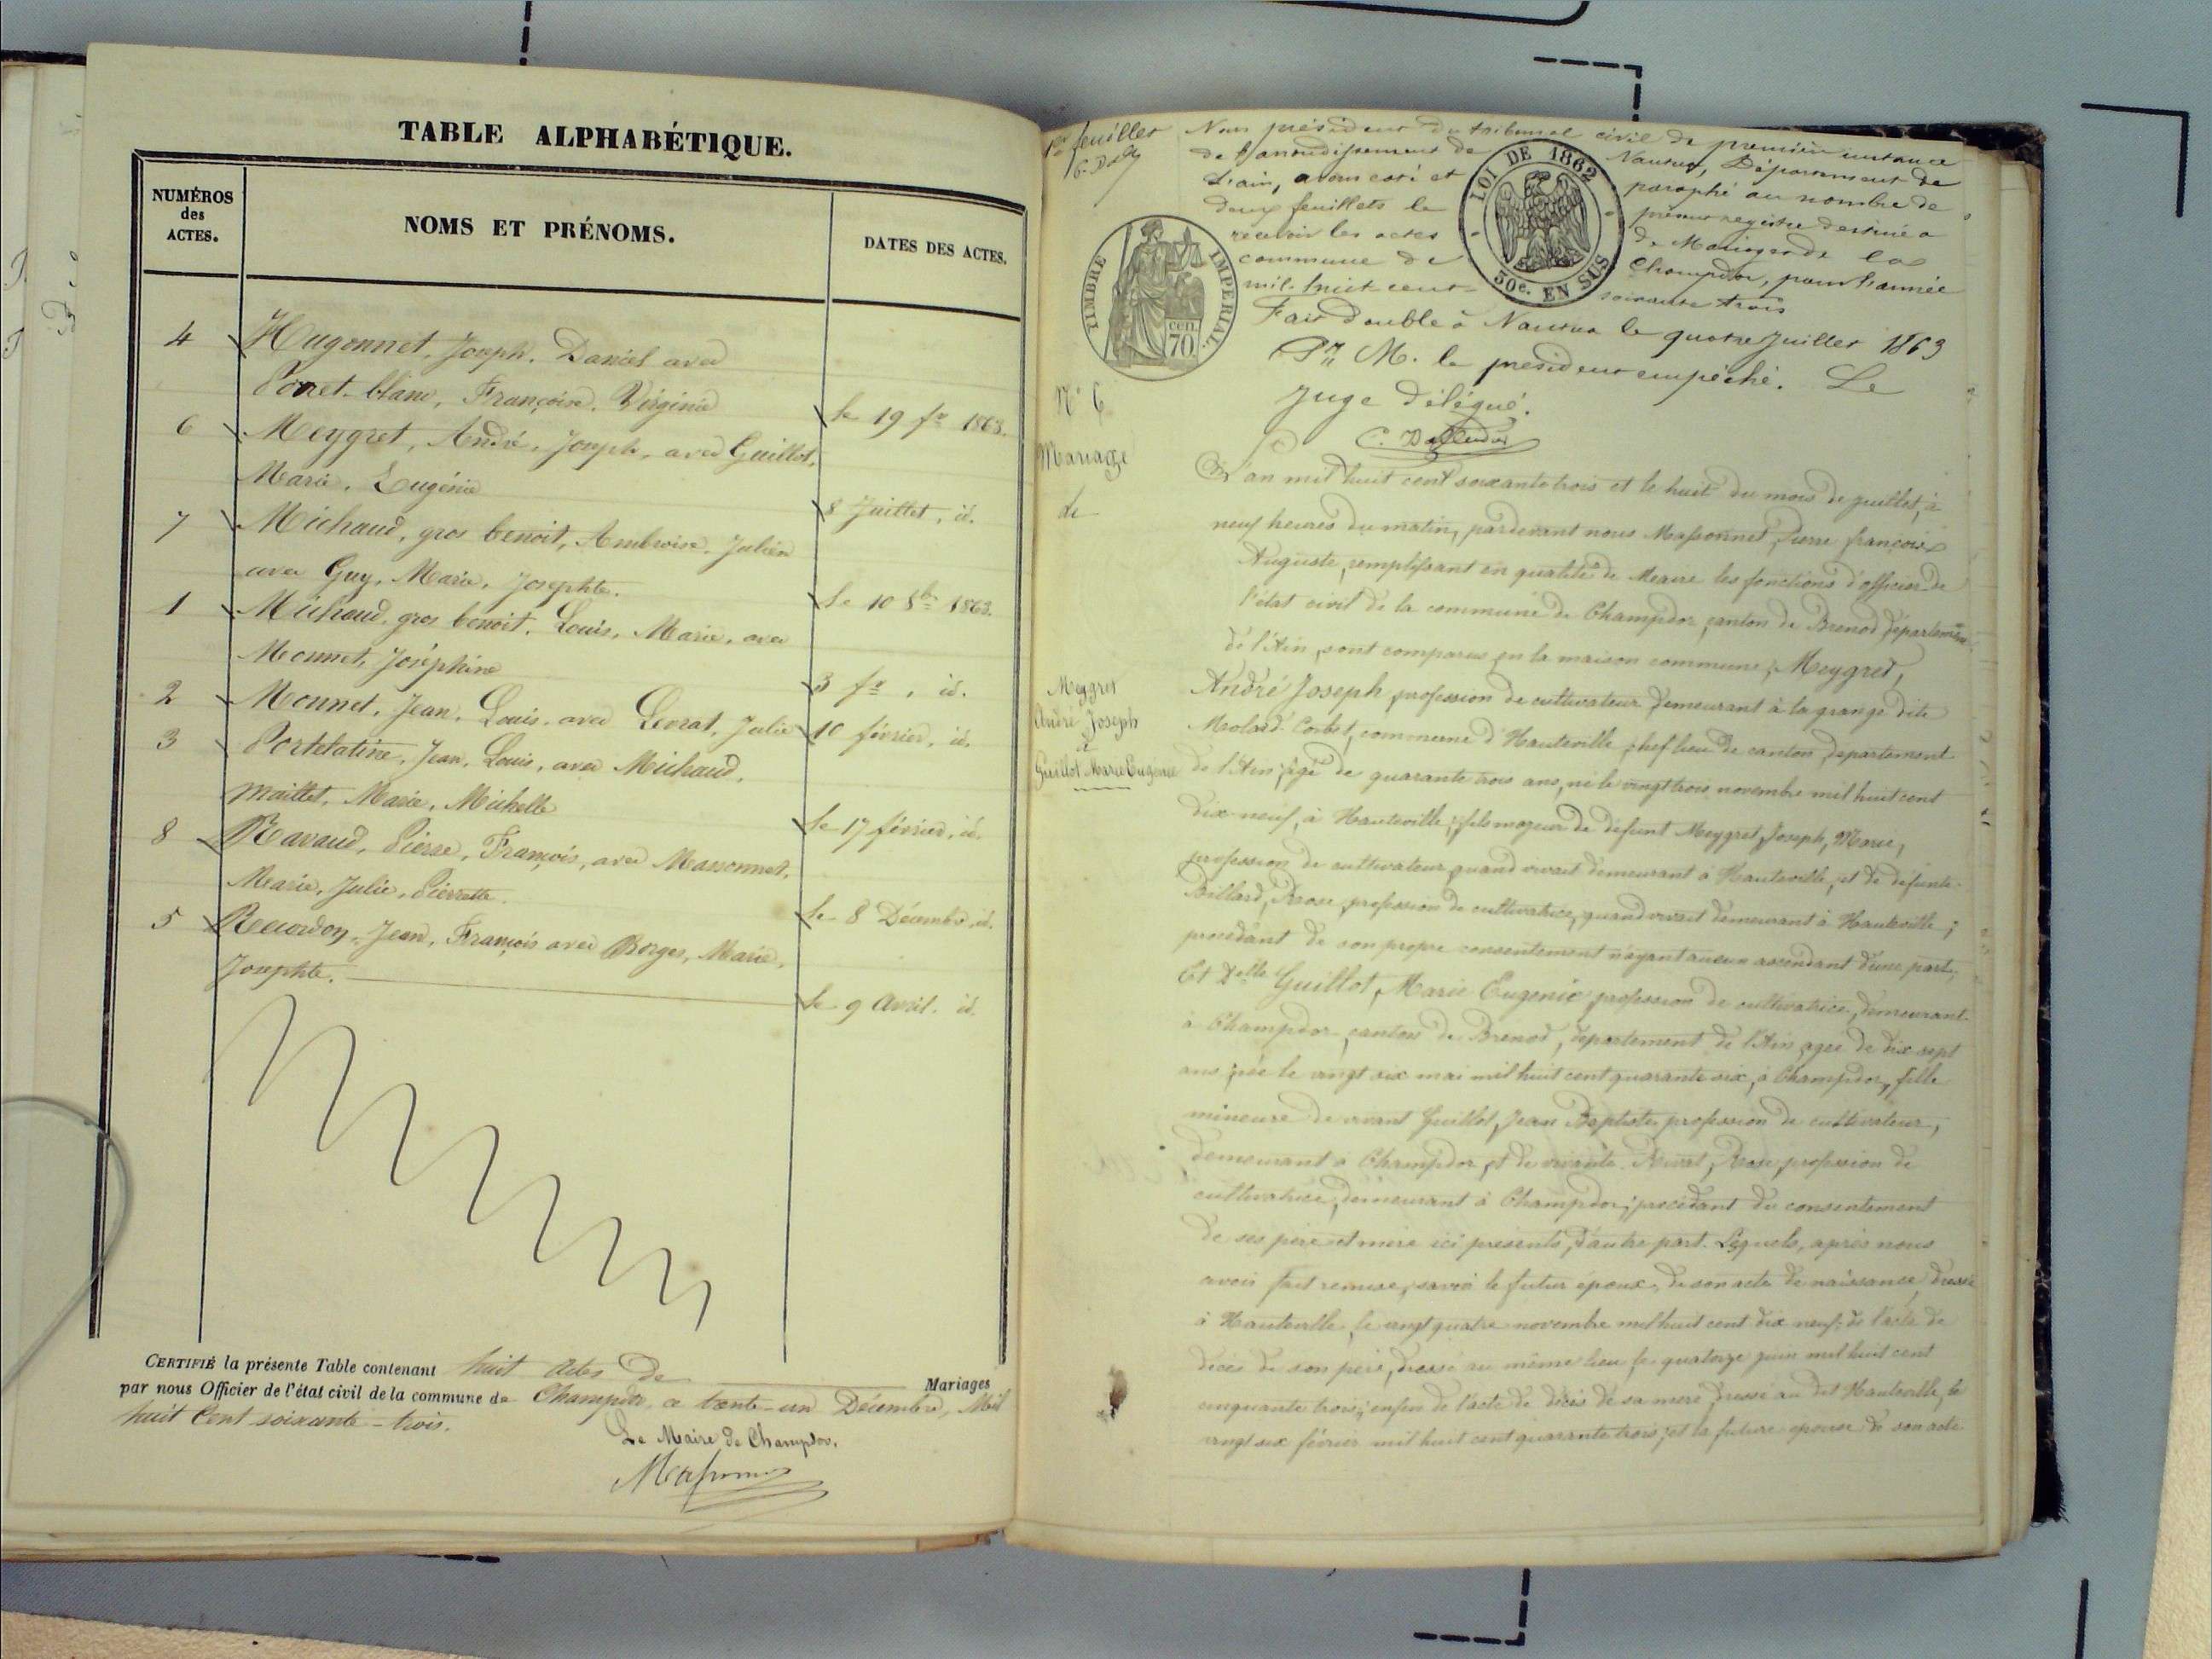 TABLE ALPHABÉTIQUE.
NUMÉROS
des
ACTES.
NOMS ET PRÉNOMS.
DATES DES ACTES.
4 Hugonnet, Joseph, Daniel avec
Ponet-blanc, Françoise, Virginie le 19 fr 1863.
6 Meygret, André, Joseph, avec Guillot,
Marie, Eugénie 8 Juillet, id.
7 Michaud, gros benoit, Ambroise, Julien
avec Guy, Marie, Josephte. Le 10 8bre 1863.
1 Michaud, gros benoit, Louis, Marie, avec
Monnet, Joséphine 3 fr, id.
2 Monnet, Jean, Louis, avec Levrat, Julie 10 février, id.
3 Portelatine, Jean, Louis, avec Michaud,
maillet, Marie, Michelle Le 17 février, id.
8 Ravaud, Pierre, François, avec Massonnet,
Marie, Julie, Pierrette. Le 8 Décembre id.
5 Recordon, Jean, François avec Borges, Marie,
Josephte. Le 9 Avril. id.
CERTIFIÉ la présente Table contenant huit actes de Mariages
par nous Officier de l'état civil de la commune de Champdor, ce trente-un Décembre, Mil
huit Cent soixante-trois.
Le Maire de Champdor.
Massonnet
1er feuillet
Nous président du tribunal civil de première instance
de l'arrondissement de Nantua, Département de
l'ain, avons coté et paraphé au nombre de
deux feuillets le présent registre destiné a
recevoir les actes de Mariages de la
commune de Champdor, pour l'année
mil-huit-cent-soixante trois
Fait double à Nantua le quatre juillet 1863
Pr M. le président empêché. Le
Juge délégué.
LOI DE 1862
50c. EN SUS
TIMBRE IMPERIAL
cen. 70
N° 6
Mariage
de
Meygret
André Joseph
et
Guillot Marie Eugénie
L'an mil huit cent soixante trois et le huit du mois de juillet, à
neuf heures du matin, pardevant nous Massonnet, Pierre françois
Auguste, remplissant en qualité de Maire les fonctions d'officier de
l'état civil de la commune de Champdor, canton de Brenod département
de l'Ain, sont comparus en la maison commune; Meygret,
André Joseph profession de cultivateur, demeurant à la grange dite
Molard Corbet, commune d'Hauteville, chef lieu de canton département
de l'Ain, âgé de quarante trois ans, né le vingt trois novembre mil huit cent
dix-neuf, à Hauteville; fils majeur de défunt Meygret, Joseph, Marie,
profession de cultivateur quand vivait demeurant à Hauteville, et de défunte
Billard, Rose, profession de cultivatrice, quand vivait demeurant à Hauteville;
procédant de son propre consentement n'ayant aucun ascendant d'une part;
Et Delle Guillot, Marie Eugenie profession de cultivatrice, demeurant
à Champdor, canton de Brenod, département de l'Ain, agée de dix sept
ans, née le vingt six mai mil huit cent quarante six, à Champdor, fille
mineure de vivant Guillot, Jean Baptiste, profession de cultivateur,
demeurant à Champdor, et de vivante Rose, profession de
cultivatrice, demeurant à Champdor; procédant du consentement
de ses père et mère ici présents, d'autre part. Lesquels, après nous
avoir fait remise, savoir le futur époux, de son acte de naissance, dressé
à Hauteville, le vingt quatre novembre mil huit cent dix neuf; de l'acte de
décès de son père, dressé au même lieu, le quatorze juin mil huit cent
cinquante trois; enfin de l'acte de décès de sa mère, dressé au dit Hauteville, le
vingt six février mil huit cent quarante trois; et la future épouse de son acte